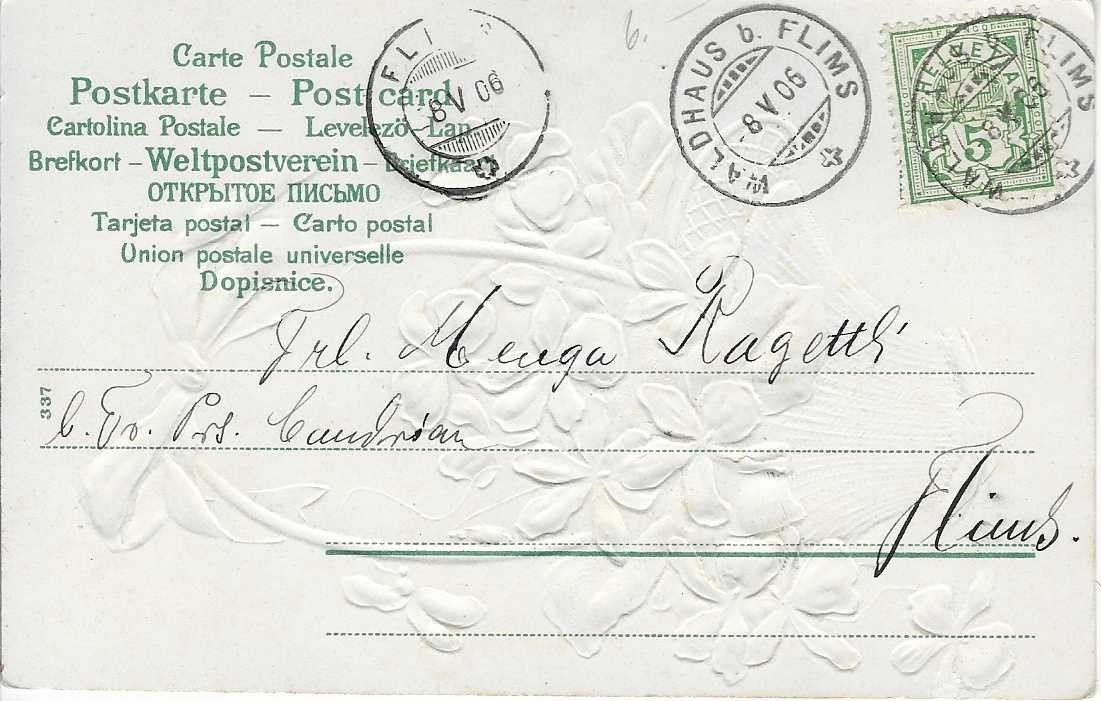 Carte Postale
Postkarte – Post card
Cartolina Postale – Levelező-Lap
Brefkort – Weltpostverein – Briefkaart
ОТКРЫТОЕ ПИСЬМО
Tarjeta postal – Carto postal
Union postale universelle
Dopisnice.
FLIMS
8 V 06
6.
WALDHAUS b. FLIMS
- 8 V 06
FRANCO
HELVETIA
5
WALDHAUS b. FLIMS
8 V 06
Frl. Menga Ragettli
337
b. Fr. Prs. Candrian
Flims.